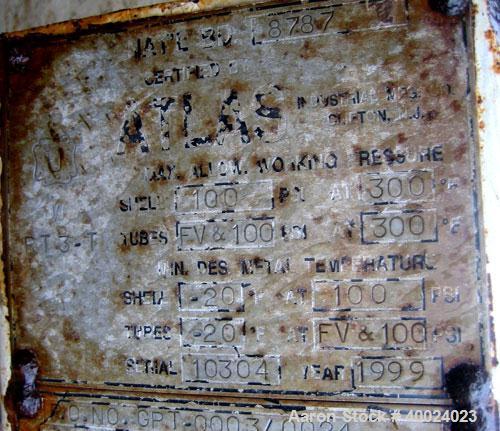 NAT'L BD 8787
CERTIFIED BY
ATLAS INDUSTRIAL MFG. CO.
CLIFTON, N.J.
U
MAX. ALLOW. WORKING PRESSURE
SHELL 100 PSI AT 300 °F
W
RT3-T TUBES FV & 100 PSI AT 300 °F
MIN. DES. METAL TEMPERATURE
SHELL -20 °F AT 100 PSI
TUBES -20 °F AT FV & 100 PSI
SERIAL 10304 YEAR 1999
Aaron Stock # 40024023
P.O. NO. GPI-0003